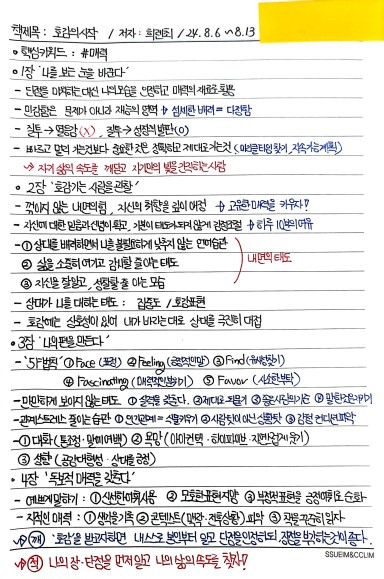 책제목 : 호감의시작 / 저자 : 희렌최 / 24.8.6 ~ 8.13
◦ 핵심키워드 : #매력
◦ 1장 '나를 보는 눈을 바꾼다'
- 단점을 마주하는 대신 나의모습을 인정하고 매력의 재료로 활용
- 민감함은 문제가 아니라 재능의 영역 → 섬세한 배려 = 다정함
- 질투 → 열등감(X), 질투 → 성장의 발판(O)
- 빠르고 멀리 가는것보다 중요한 것은 정확하고 제대로 가는것
→ 자기 삶의 속도를 깨닫고 자기만의 빛을 간직하는사람
◦ 2장 '호감가는 사람을 관찰'
- 꺾이지 않는 내면의힘, 자신의 취향을 깊이 여정 → 고유한 매력을 키우자!
- 자신에 대한 믿음과 신념이 확고, 기분이 태도가 되지 않게 감정조절 → 하루 10분의 여유
- ① 상대를 배려하면서 나를 불필요하게 낮추지 않는 언어습관
② 삶을 소중히 여기고 감사할 줄 아는 태도
③ 자신을 잘알고, 성찰할 줄 아는 모습
내면의 태도
- 상대가 나를 대하는 태도 : 집중도 / 호감표현
- 호감에는 상호성이 있어 내가 바라는대로 상대를 극진히 대접
◦ 3장 '나의편을 만든다'
- '5F법칙' ① Face (표정) ② Feeling (긍정적인말) ③ Find (유사점찾기)
④ Fascinating (매력적인분위기) ⑤ Favor (사소한부탁)
- 만만하게 보이지 않는 태도 ① 선택을 갖춘다. ② 제대로 되묻기 ③
- 관계스트레스 줄이는 습관 ① 인간관계 = 식물키우기 ② 사람탓이 아닌 상황탓 ③ 감정 컨디션파악
- ① 대화 (톤조정 · 말의여백) ② 목망 (아이컨택 · 하이파이브 · 자연스럽게 웃기)
③ 상황 (공간대형성 · 상대를 긍정)
◦ 4장 '독보적 매력을 갖춘다'
- 예쁘게말하기 : ① 신선한어휘사용 ② 모호한표현지양 ③ 부정적표현을 긍정어휘로 순화
- 지적인 매력 : ① 생각을기록 ② 콘텍스트(맥락·전후상황) 파악 ③ 책을 꾸준히 읽자
→ 깨 '호감'을 받고자하면 내 스스로 본인부터 알고 단점을인정하되, 장점을 부각하는것이좋다.
→ 적 나의 장·단점을 먼저 알고 나의 삶의 속도를 찾자!
SSUEIM&CCLIM